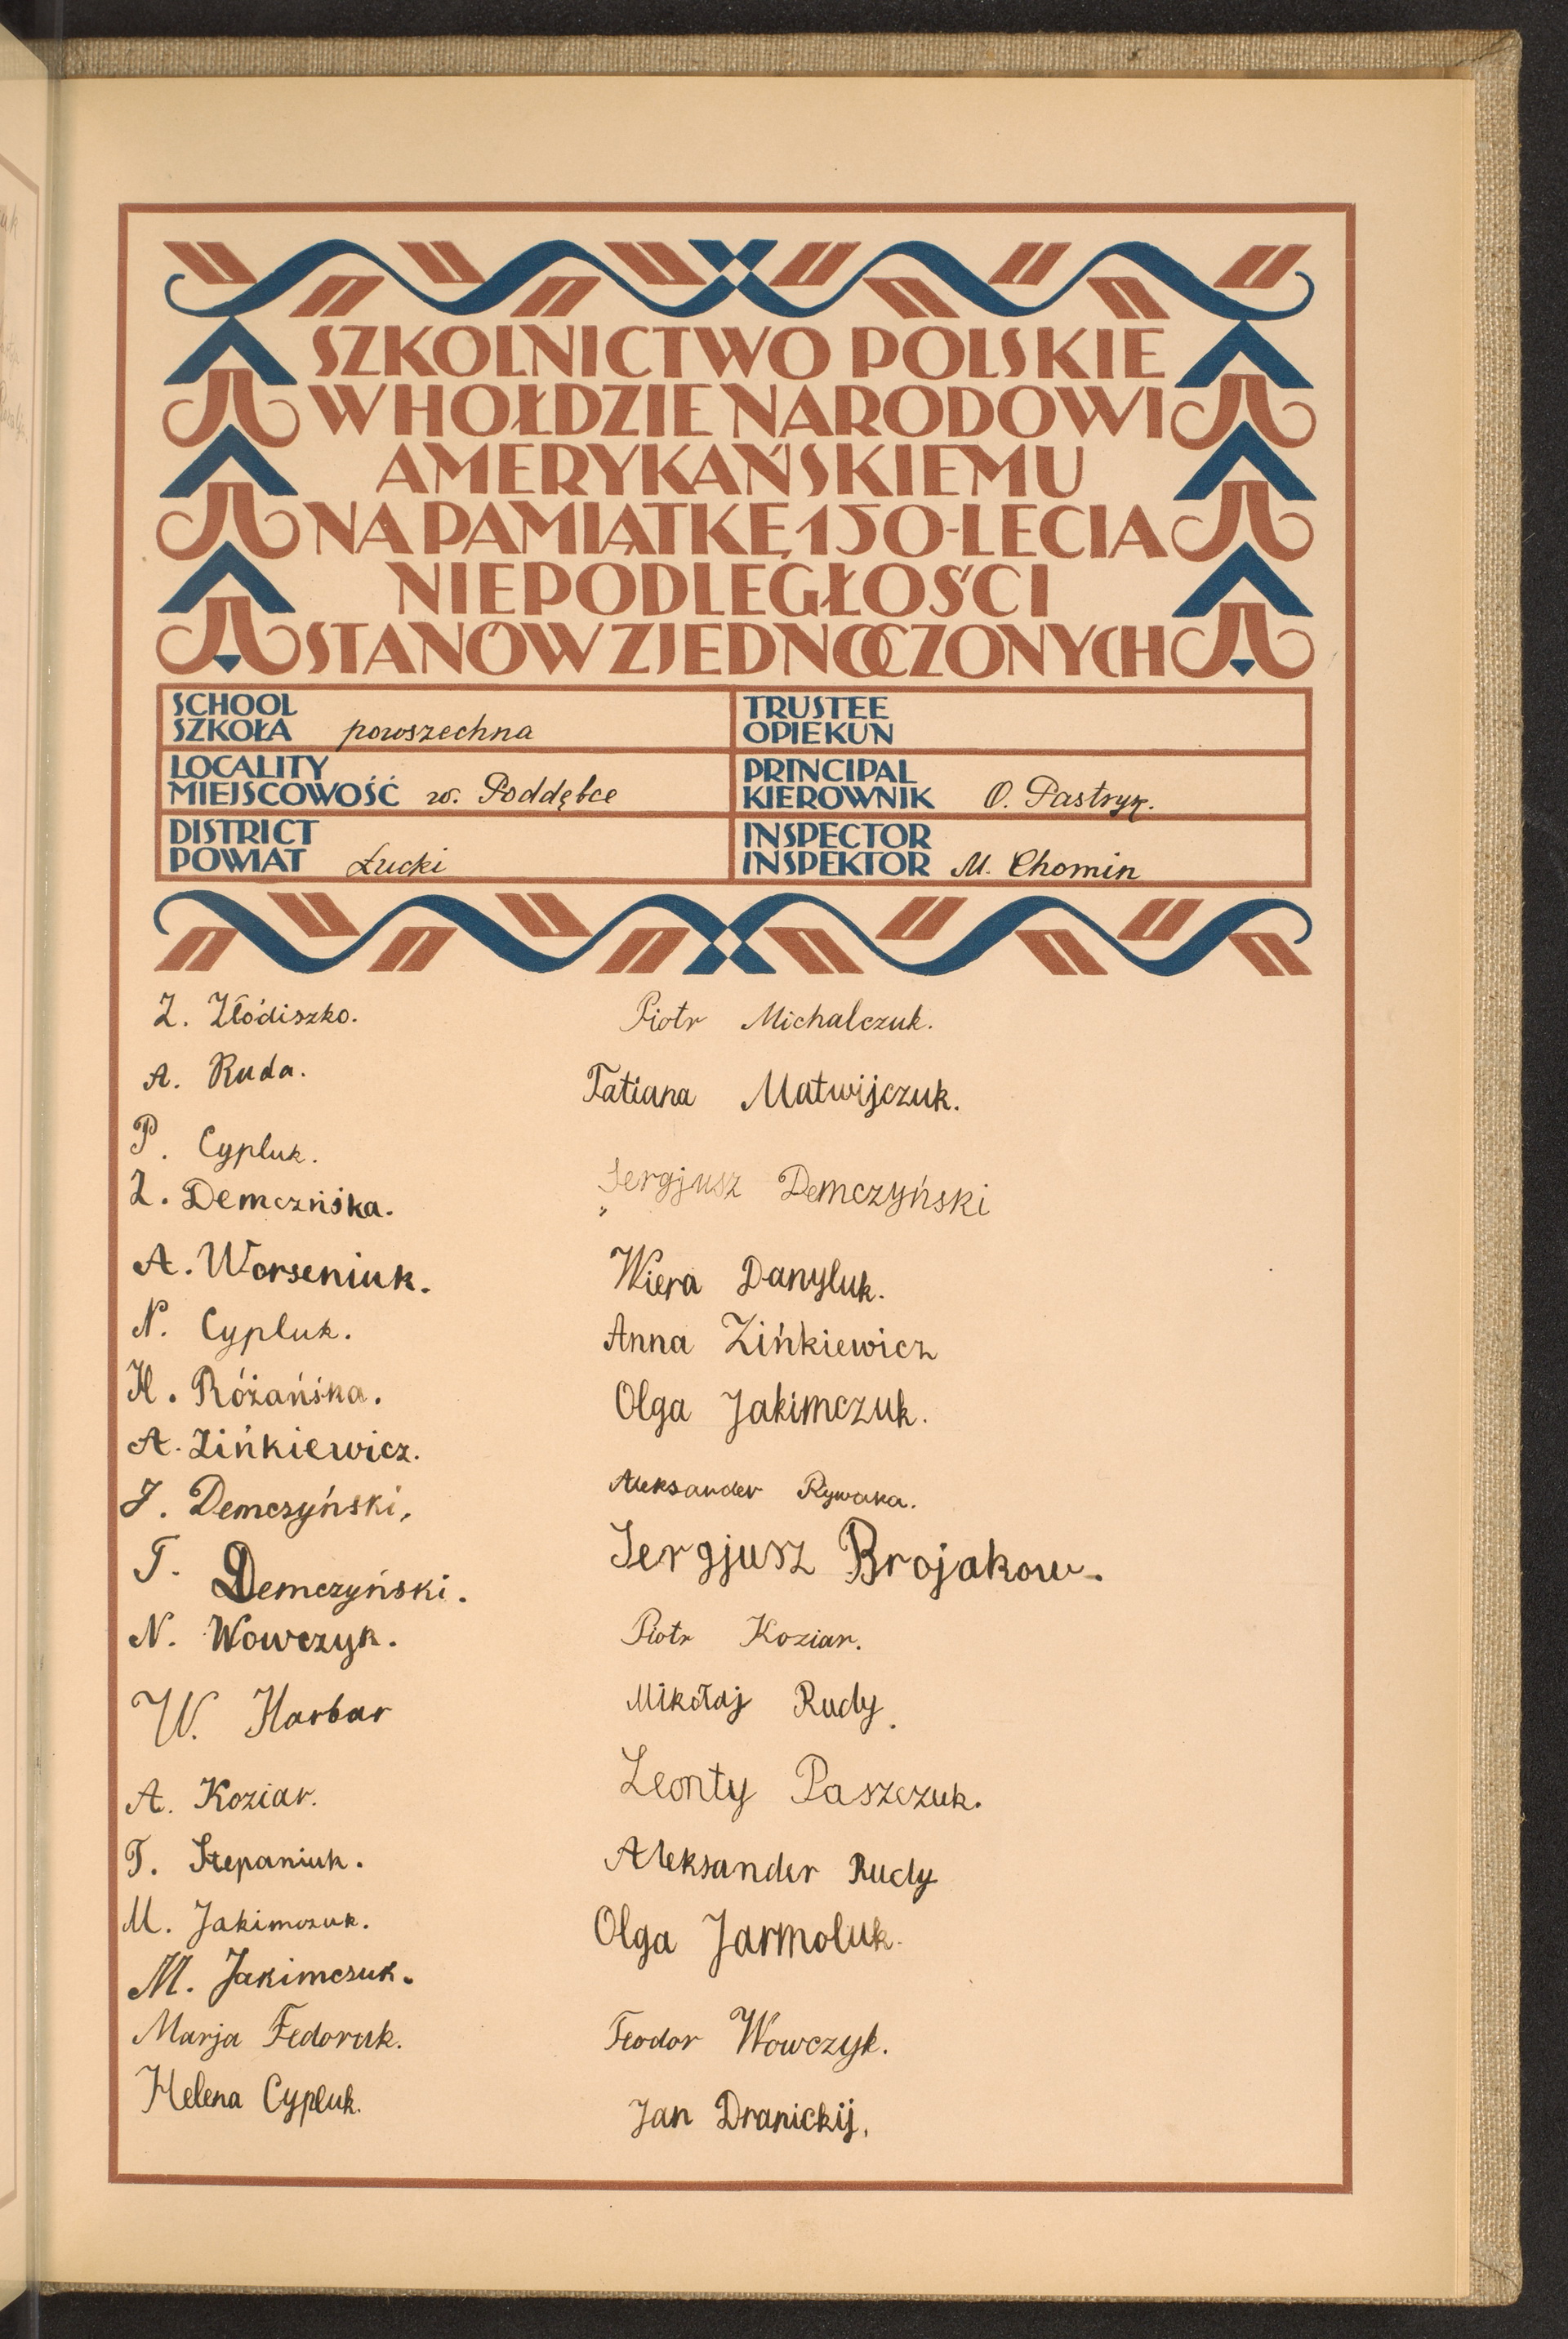 SZKOLNICTWO POLSKIE
W HOŁDZIE NARODOWI
AMERYKAŃSKIEMU
NA PAMIĄTKĘ 150-LECIA
NIEPODLEGŁOŚCI
STANÓW ZJEDNOCZONYCH
SCHOOL
SZKOŁA powszechna
TRUSTEE
OPIEKUN
LOCALITY
MIEJSCOWOŚĆ w. Poddębce
PRINCIPAL
KIEROWNIK O. Pastryk.
DISTRICT
POWIAT Łucki
INSPECTOR
INSPEKTOR M. Chomin
Z. Złódiszko.
A. Ruda.
P. Cypluk.
Z. Demczńska.
A. Worseniuk.
N. Cypluk.
H. Różańska.
A. Zińkiewicz.
J. Demczyński,
T. Demczyński.
N. Wowczyk.
W. Harbar
A. Koziar.
T. Stepaniuk.
M. Jakimczuk.
M. Jakimczuk.
Marja Fedoruk.
Helena Cypluk.
Piotr Michalczuk.
Tatiana Matwijczuk.
Sergjusz Demczyński
Wiera Danyluk.
Anna Zińkiewicz
Olga Jakimczuk.
Aleksander Rywaka.
Sergjusz Brojakow.
Piotr Koziar.
Mikołaj Rudy.
Leonty Paszczuk.
Aleksander Rudy
Olga Jarmoluk.
Teodor Wowczyk.
Jan Dranickij.